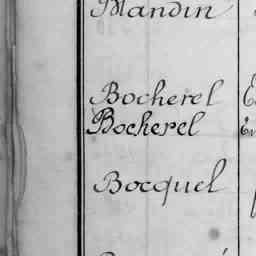 Mandin
Bocherel
Bocherel
Bocquel